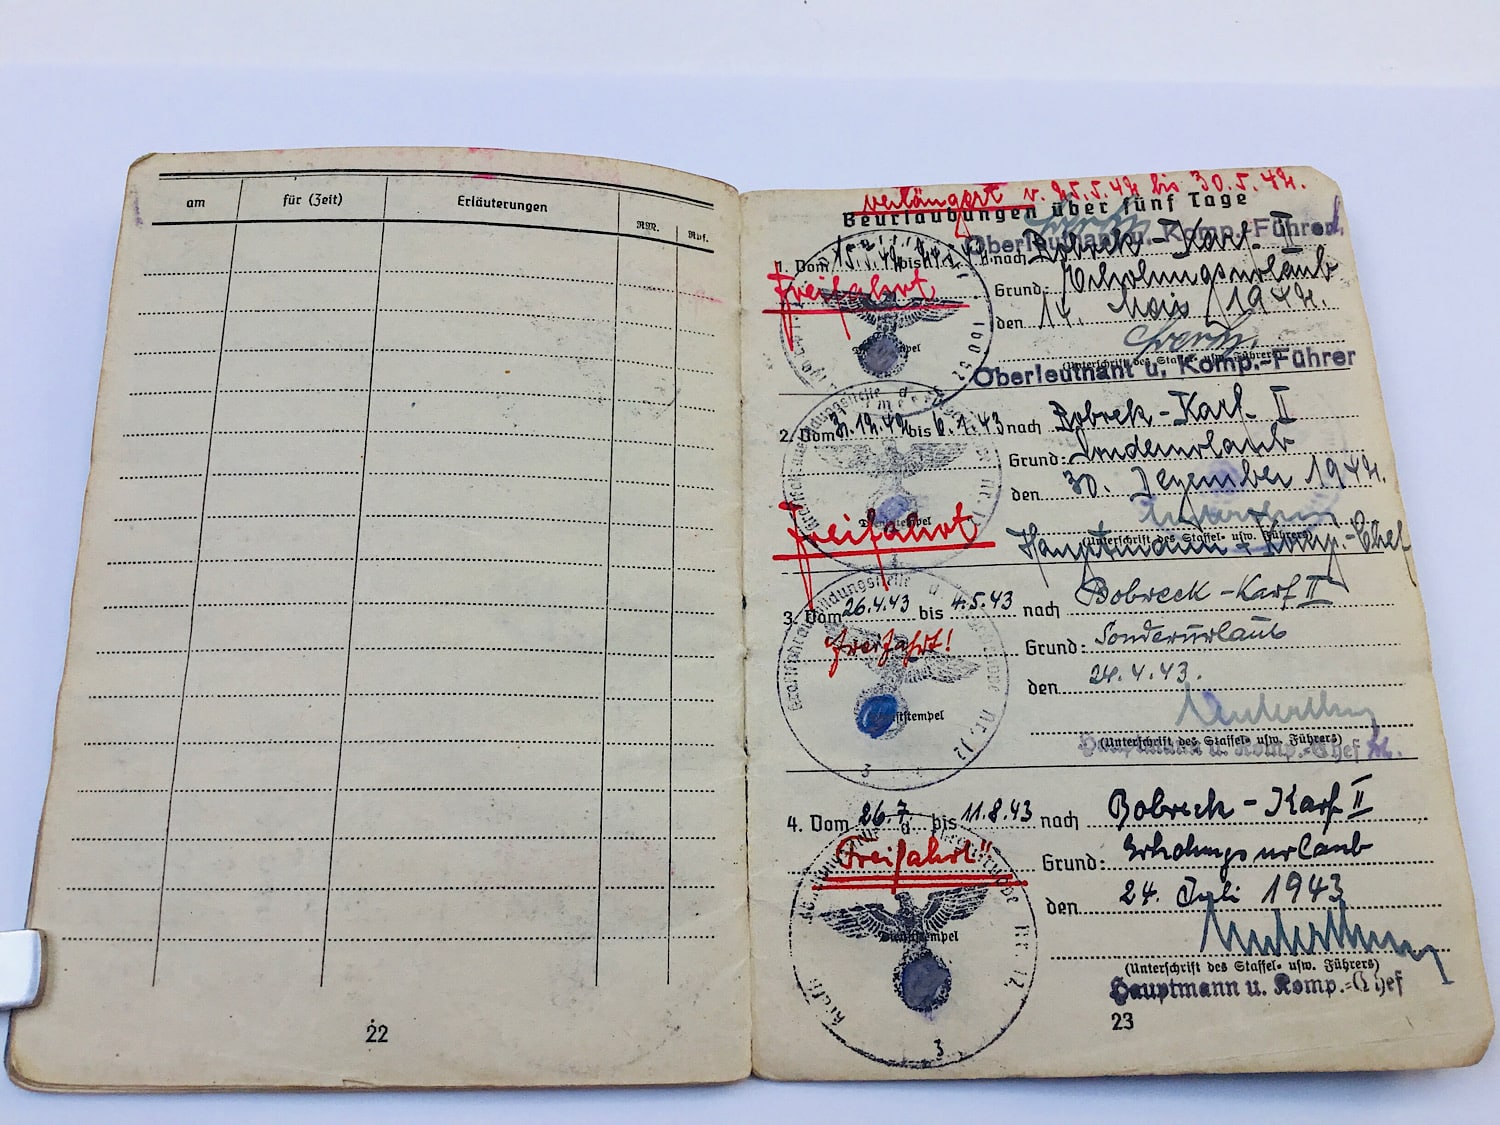 am für (Zeit) Erläuterungen RM. Rpf.
22
verlängert v. 25.5.42 bis 30.5.42.
Beurlaubungen über fünf Tage
Oberleutnant u. Komp.-Führer
1. Vom 15.5.42 bis nach Bobrek-Karf II
Freifahrt
Grund: Erholungsurlaub
den 14. Mai 1942.
Dienststempel
(Unterschrift des Staffel- usw. Führers)
Oberleutnant u. Komp.-Führer
2. Vom 31.12.42 bis 6.1.43 nach Bobrek-Karf II
Grund: Sonderurlaub
den 30. Dezember 1942.
Dienststempel
Freifahrt
(Unterschrift des Staffel- usw. Führers)
Hauptmann u. Komp.-Chef
3. Vom 26.4.43 bis 4.5.43 nach Bobreck-Karf II
Freifahrt!
Grund: Sonderurlaub
den 24.4.43.
Dienststempel
(Unterschrift des Staffel- usw. Führers)
Hauptmann u. Komp.-Chef
3
4. Vom 26.7. bis 11.8.43 nach Bobreck-Karf II
"Freifahrt"
Grund: Erholungsurlaub
den 24. Juli 1943
Dienststempel
(Unterschrift des Staffel- usw. Führers)
Hauptmann u. Komp.-Chef
3
23